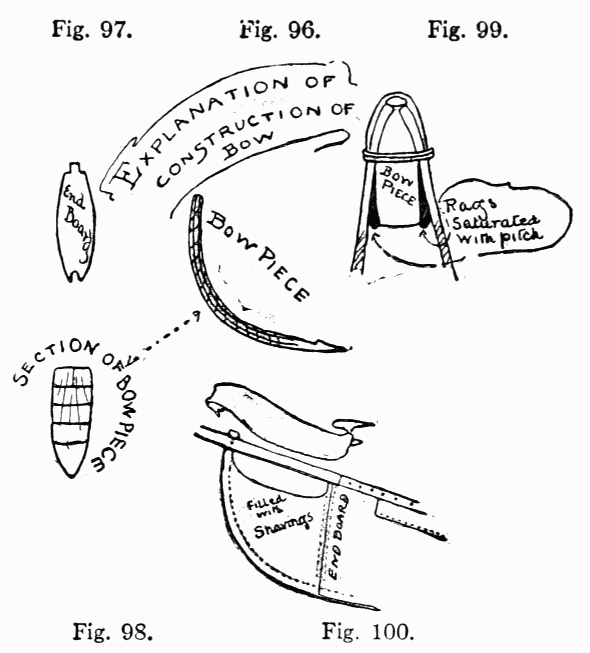 Fig. 97.
Fig. 96.
Fig. 99.
EXPLANATION OF
CONSTRUCTION OF
BOW
End
Board
BOW PIECE
BOW
PIECE
Rags
Saturated
with pitch
SECTION OF BOW PIECE
Filled
with
Shavings
END BOARD
Fig. 98.
Fig. 100.